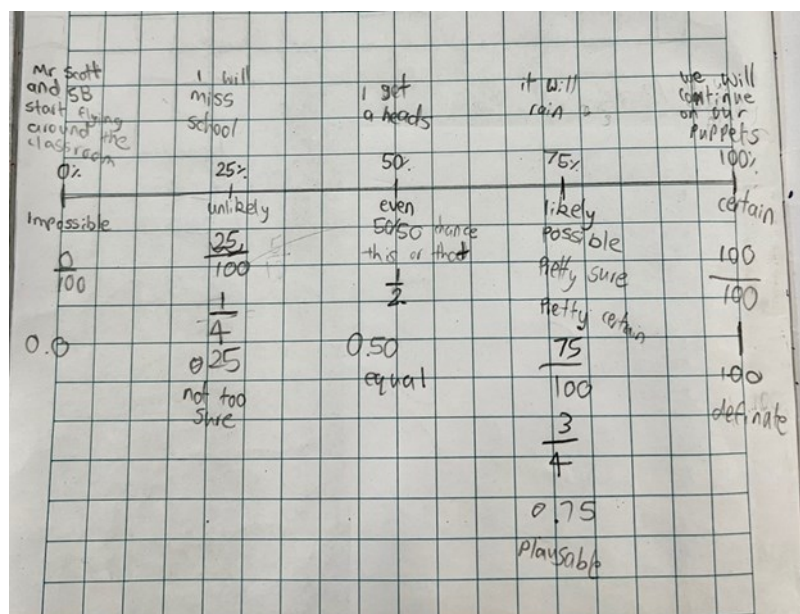 Mr Scott
and SB
start flying
around the
classroom
0%
Impossible
0
100
0.0
I will
miss
school
25%
unlikely
25
100
1
4
025
not too
sure
I get
a heads
50%
even
50/50 chance
this or that
1
2
0.50
equal
it will
rain
75%
likely
possible
Pretty sure
Pretty certain
75
100
3
4
0.75
Plausable
we will
continue
on our
puppets
100%
certain
100
100
1
100
definate